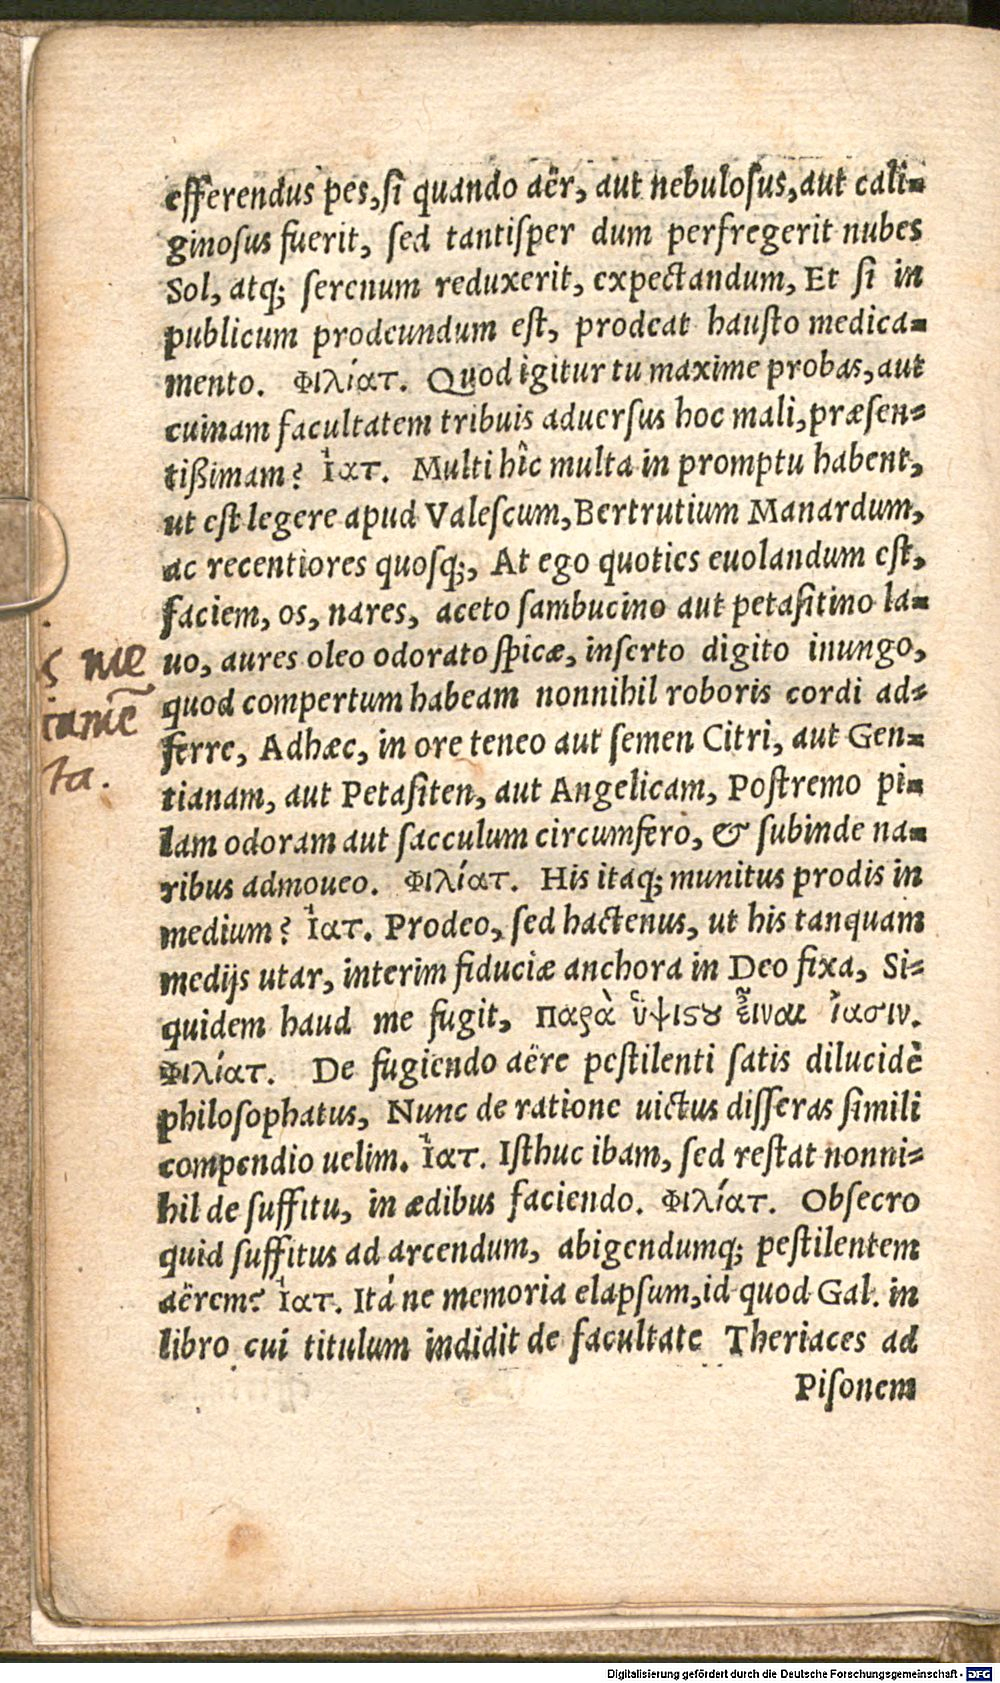 efferendus pes, ſi quando aër, aut nebuloſus, aut cali-
ginoſus fuerit, ſed tantiſper dum perfregerit nubes
Sol, atq; ſerenum reduxerit, expectandum, Et ſi in
publicum prodeundum eſt, prodeat hauſto medica-
mento. Φιλίατ. Quod igitur tu maxime probas, aut
cuinam facultatem tribuis aduerſus hoc mali, præſen-
tißimam? Ἰατ. Multi hîc multa in promptu habent,
ut eſt legere apud Valeſcum, Bertrutium Manardum,
ac recentiores quoſq;, At ego quoties euolandum eſt,
faciem, os, nares, aceto ſambucino aut petaſitino la-
uo, aures oleo odorato ſpicæ, inſerto digito inungo,
quod compertum habeam nonnihil roboris cordi ad-
ferre, Adhæc, in ore teneo aut ſemen Citri, aut Gen-
tianam, aut Petaſiten, aut Angelicam, Poſtremo pi-
lam odoram aut ſacculum circumfero, & ſubinde na-
ribus admoueo. Φιλίατ. His itaq; munitus prodis in
medium? Ἰατ. Prodeo, ſed hactenus, ut his tanquam
medijs utar, interim fiduciæ anchora in Deo fixa, Si-
quidem haud me fugit, παρὰ ὑψιϛου εἶναι ἴασιν.
Φιλίατ. De fugiendo aëre peſtilenti ſatis dilucidè
philoſophatus, Nunc de ratione uictus diſſeras ſimili
compendio uelim. Ἰατ. Iſthuc ibam, ſed reſtat nonni-
hil de ſuffitu, in ædibus faciendo. Φιλίατ. Obſecro
quid ſuffitus ad arcendum, abigendumq; peſtilentem
aërem? Ἰατ. Itáne memoria elapſum, id quod Gal. in
libro cui titulum indidit de facultate Theriaces ad
Piſonem
Digitalisierung gefördert durch die Deutsche Forschungsgemeinschaft - DFG